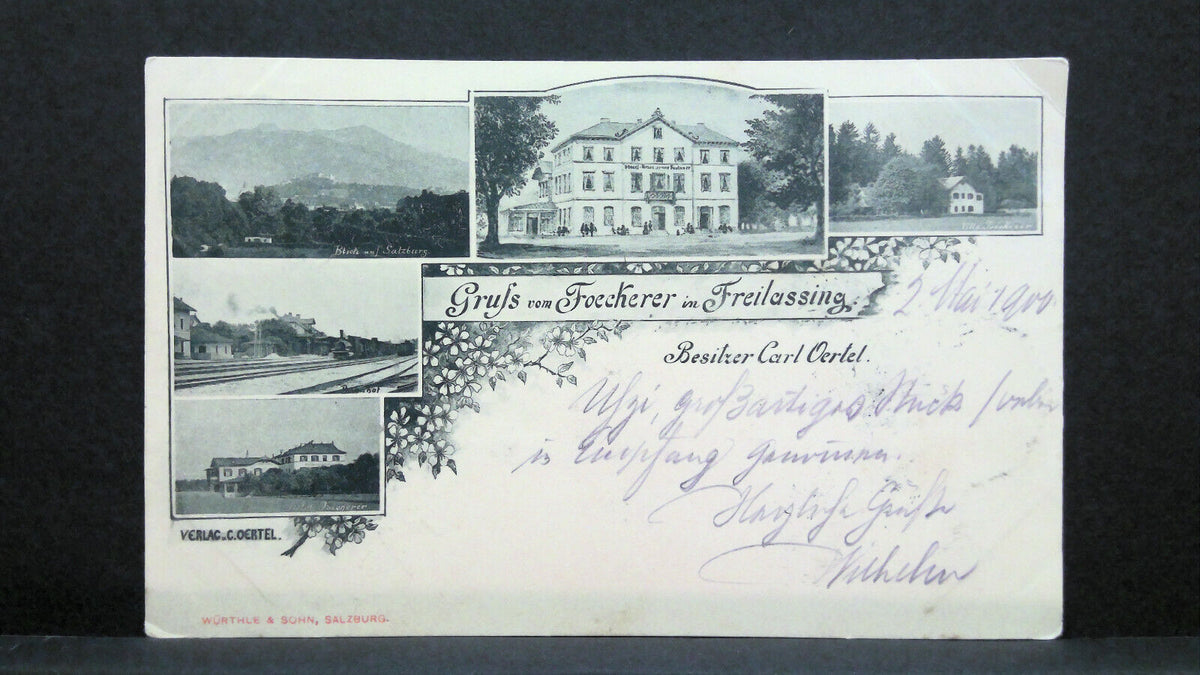 Blick auf Salzburg
Gruss vom Foeckerer in Freilassing.
2. Mai 1900
Besitzer Carl Oertel.
großartiges Stück
in Empfang genommen.
Herzliche Grüße
Wilhelm
Foeckerer
VERLAG v. C. OERTEL.
WÜRTHLE & SOHN, SALZBURG.